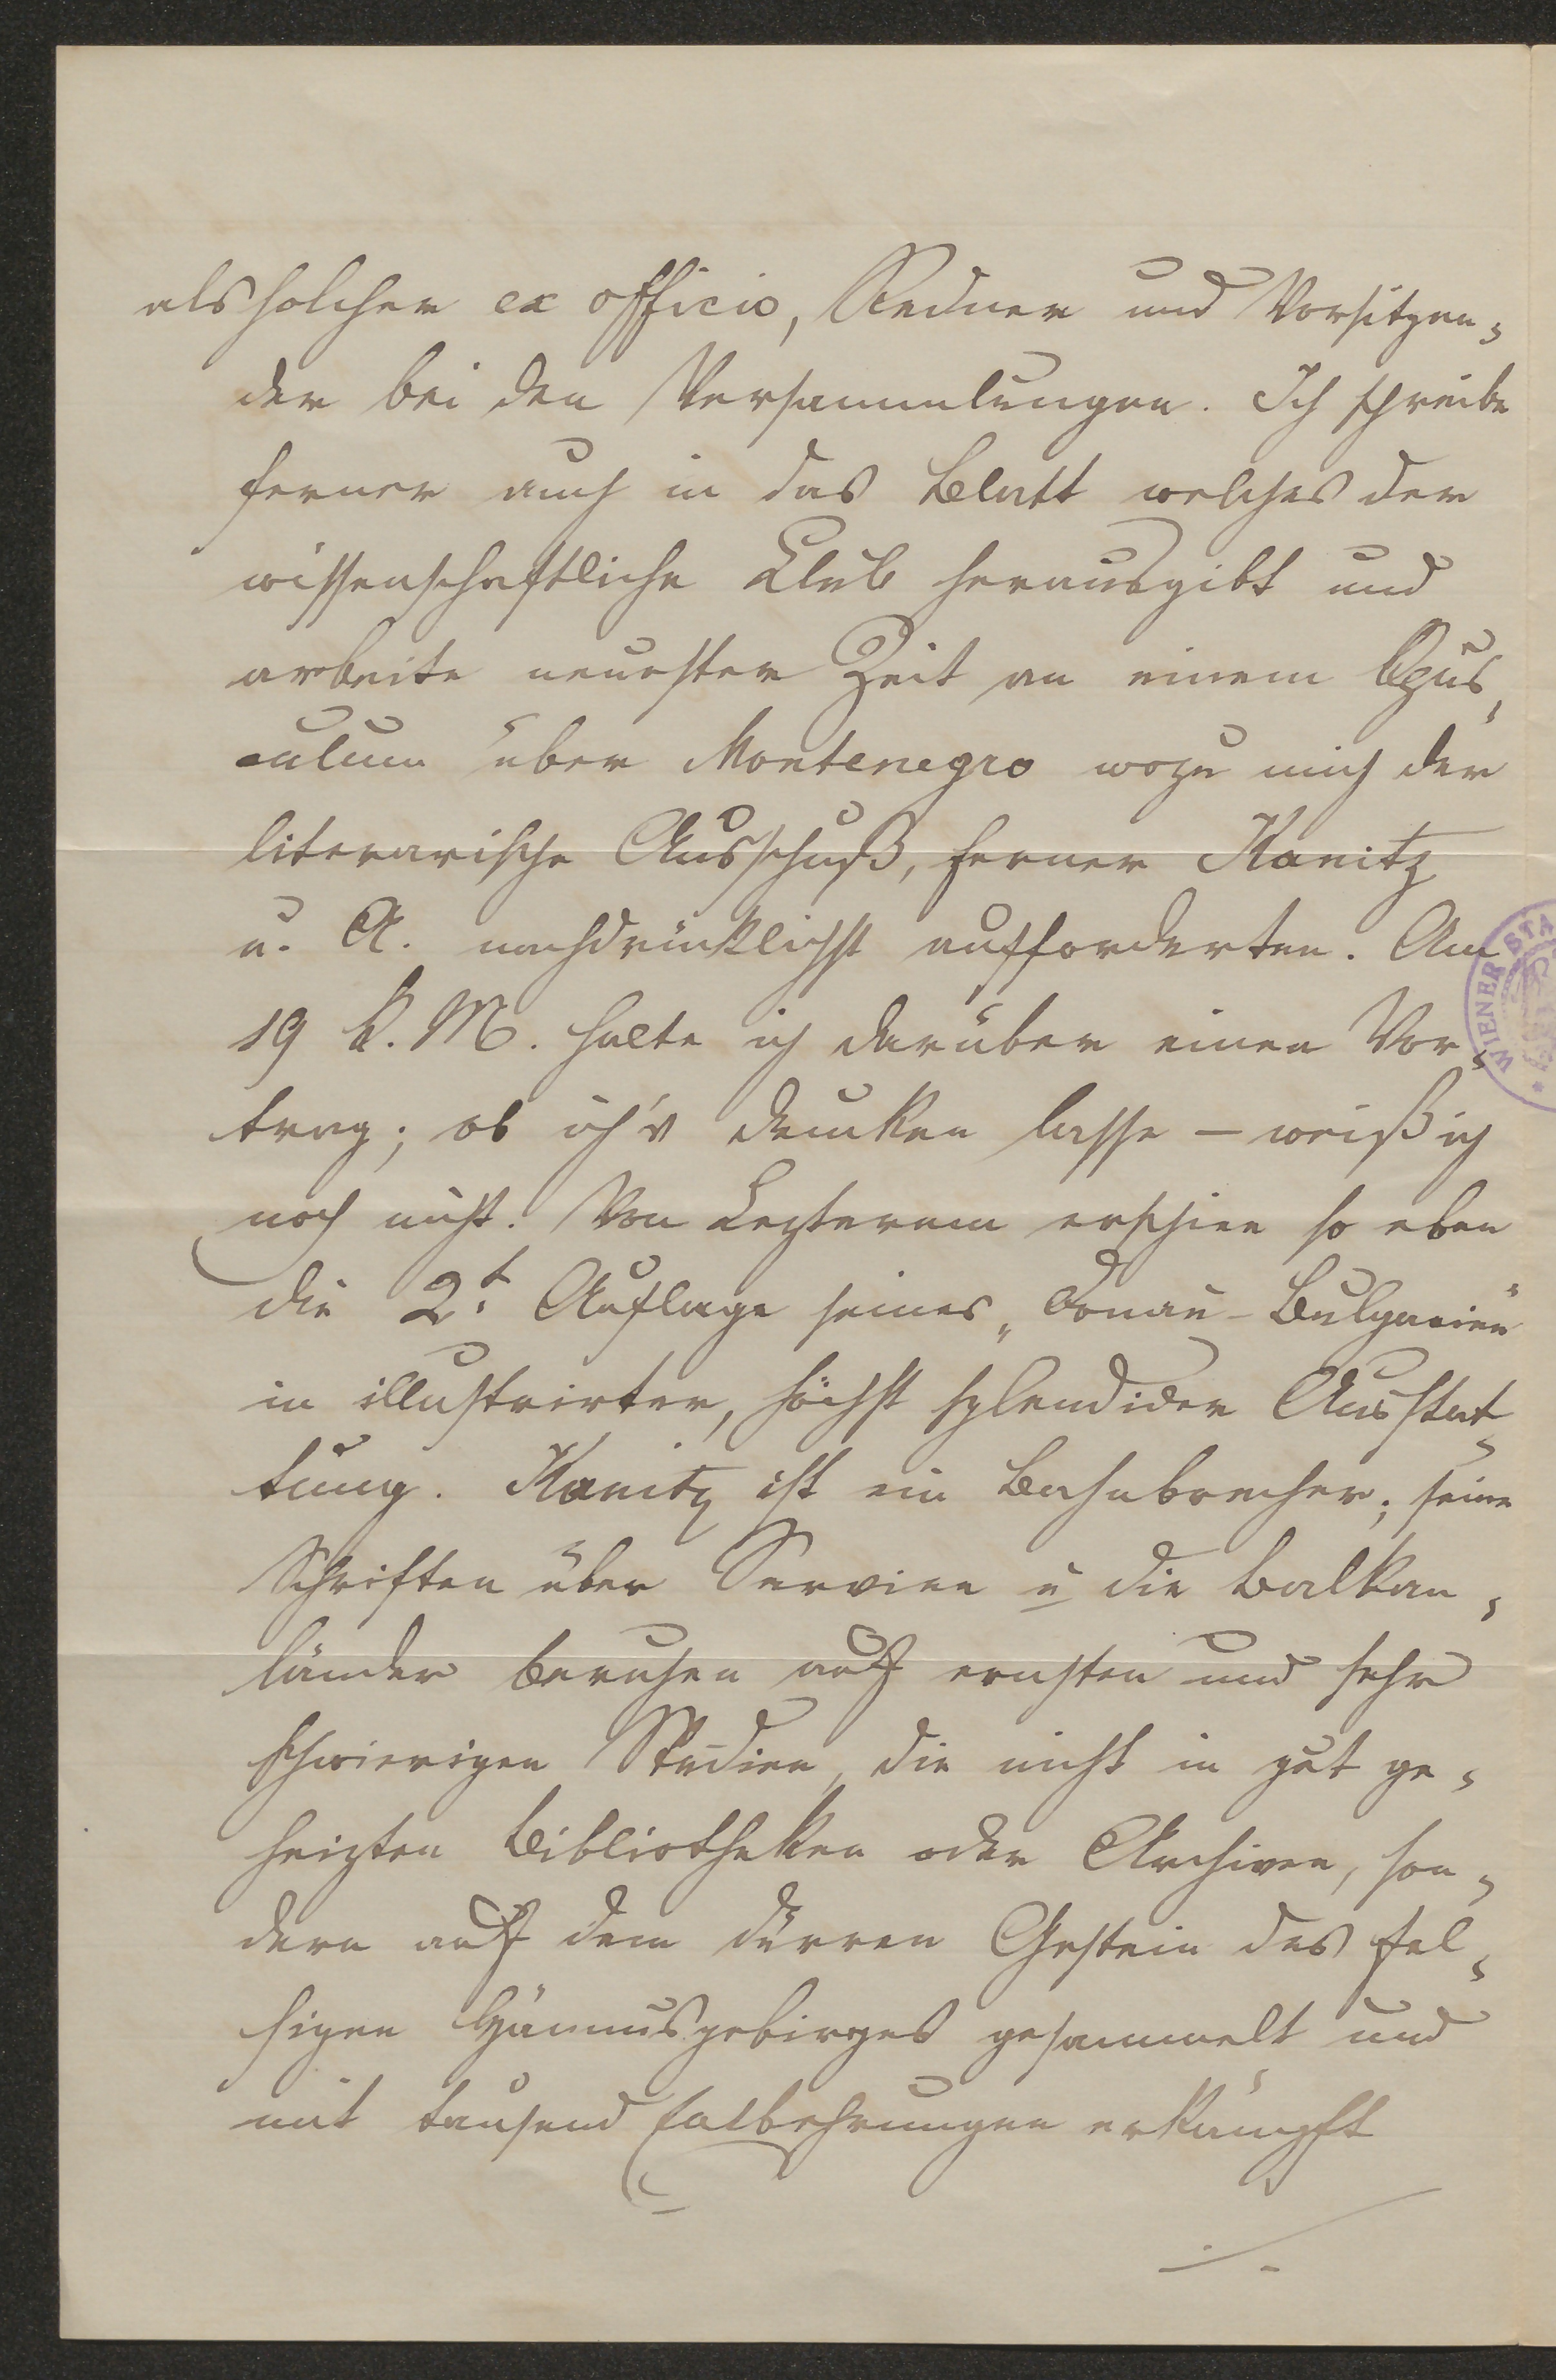 als solcher ex officio, Redner und Vorsitzen-
der bei den Versammlungen. Ich schreibe
ferner auch in das Blatt welches der
wissenschaftliche Club herausgibt und
arbeite neuester Zeit an einem Opus-
culum über Montenegro wozu mich der
literarische Ausschuß, ferner Kanitz
u. A. nachdrücklichst aufforderten. Am
19 k. M. halte ich darüber einen Vor-
trag; ob ich's drucken lasse – weiß ich
noch nicht. Von Lezterem erschien so eben
die 2t. Auflage seines „Donau-Bulgarien"
in illustrirter, höchst splendider Ausstat-
tung. Kanitz ist ein Bahnbrecher; seine
Schriften über Servien u die Balkan-
länder beruhen auf ernsten und sehr
schwierigen Studien, die nicht in gut ge-
heizten Bibliotheken oder Archiven, son-
dern auf dem dürren Gestein des fel-
sigen Hämusgebirges gesammelt und
mit tausend Entbehrungen erkämpft
./.
WIENER STA